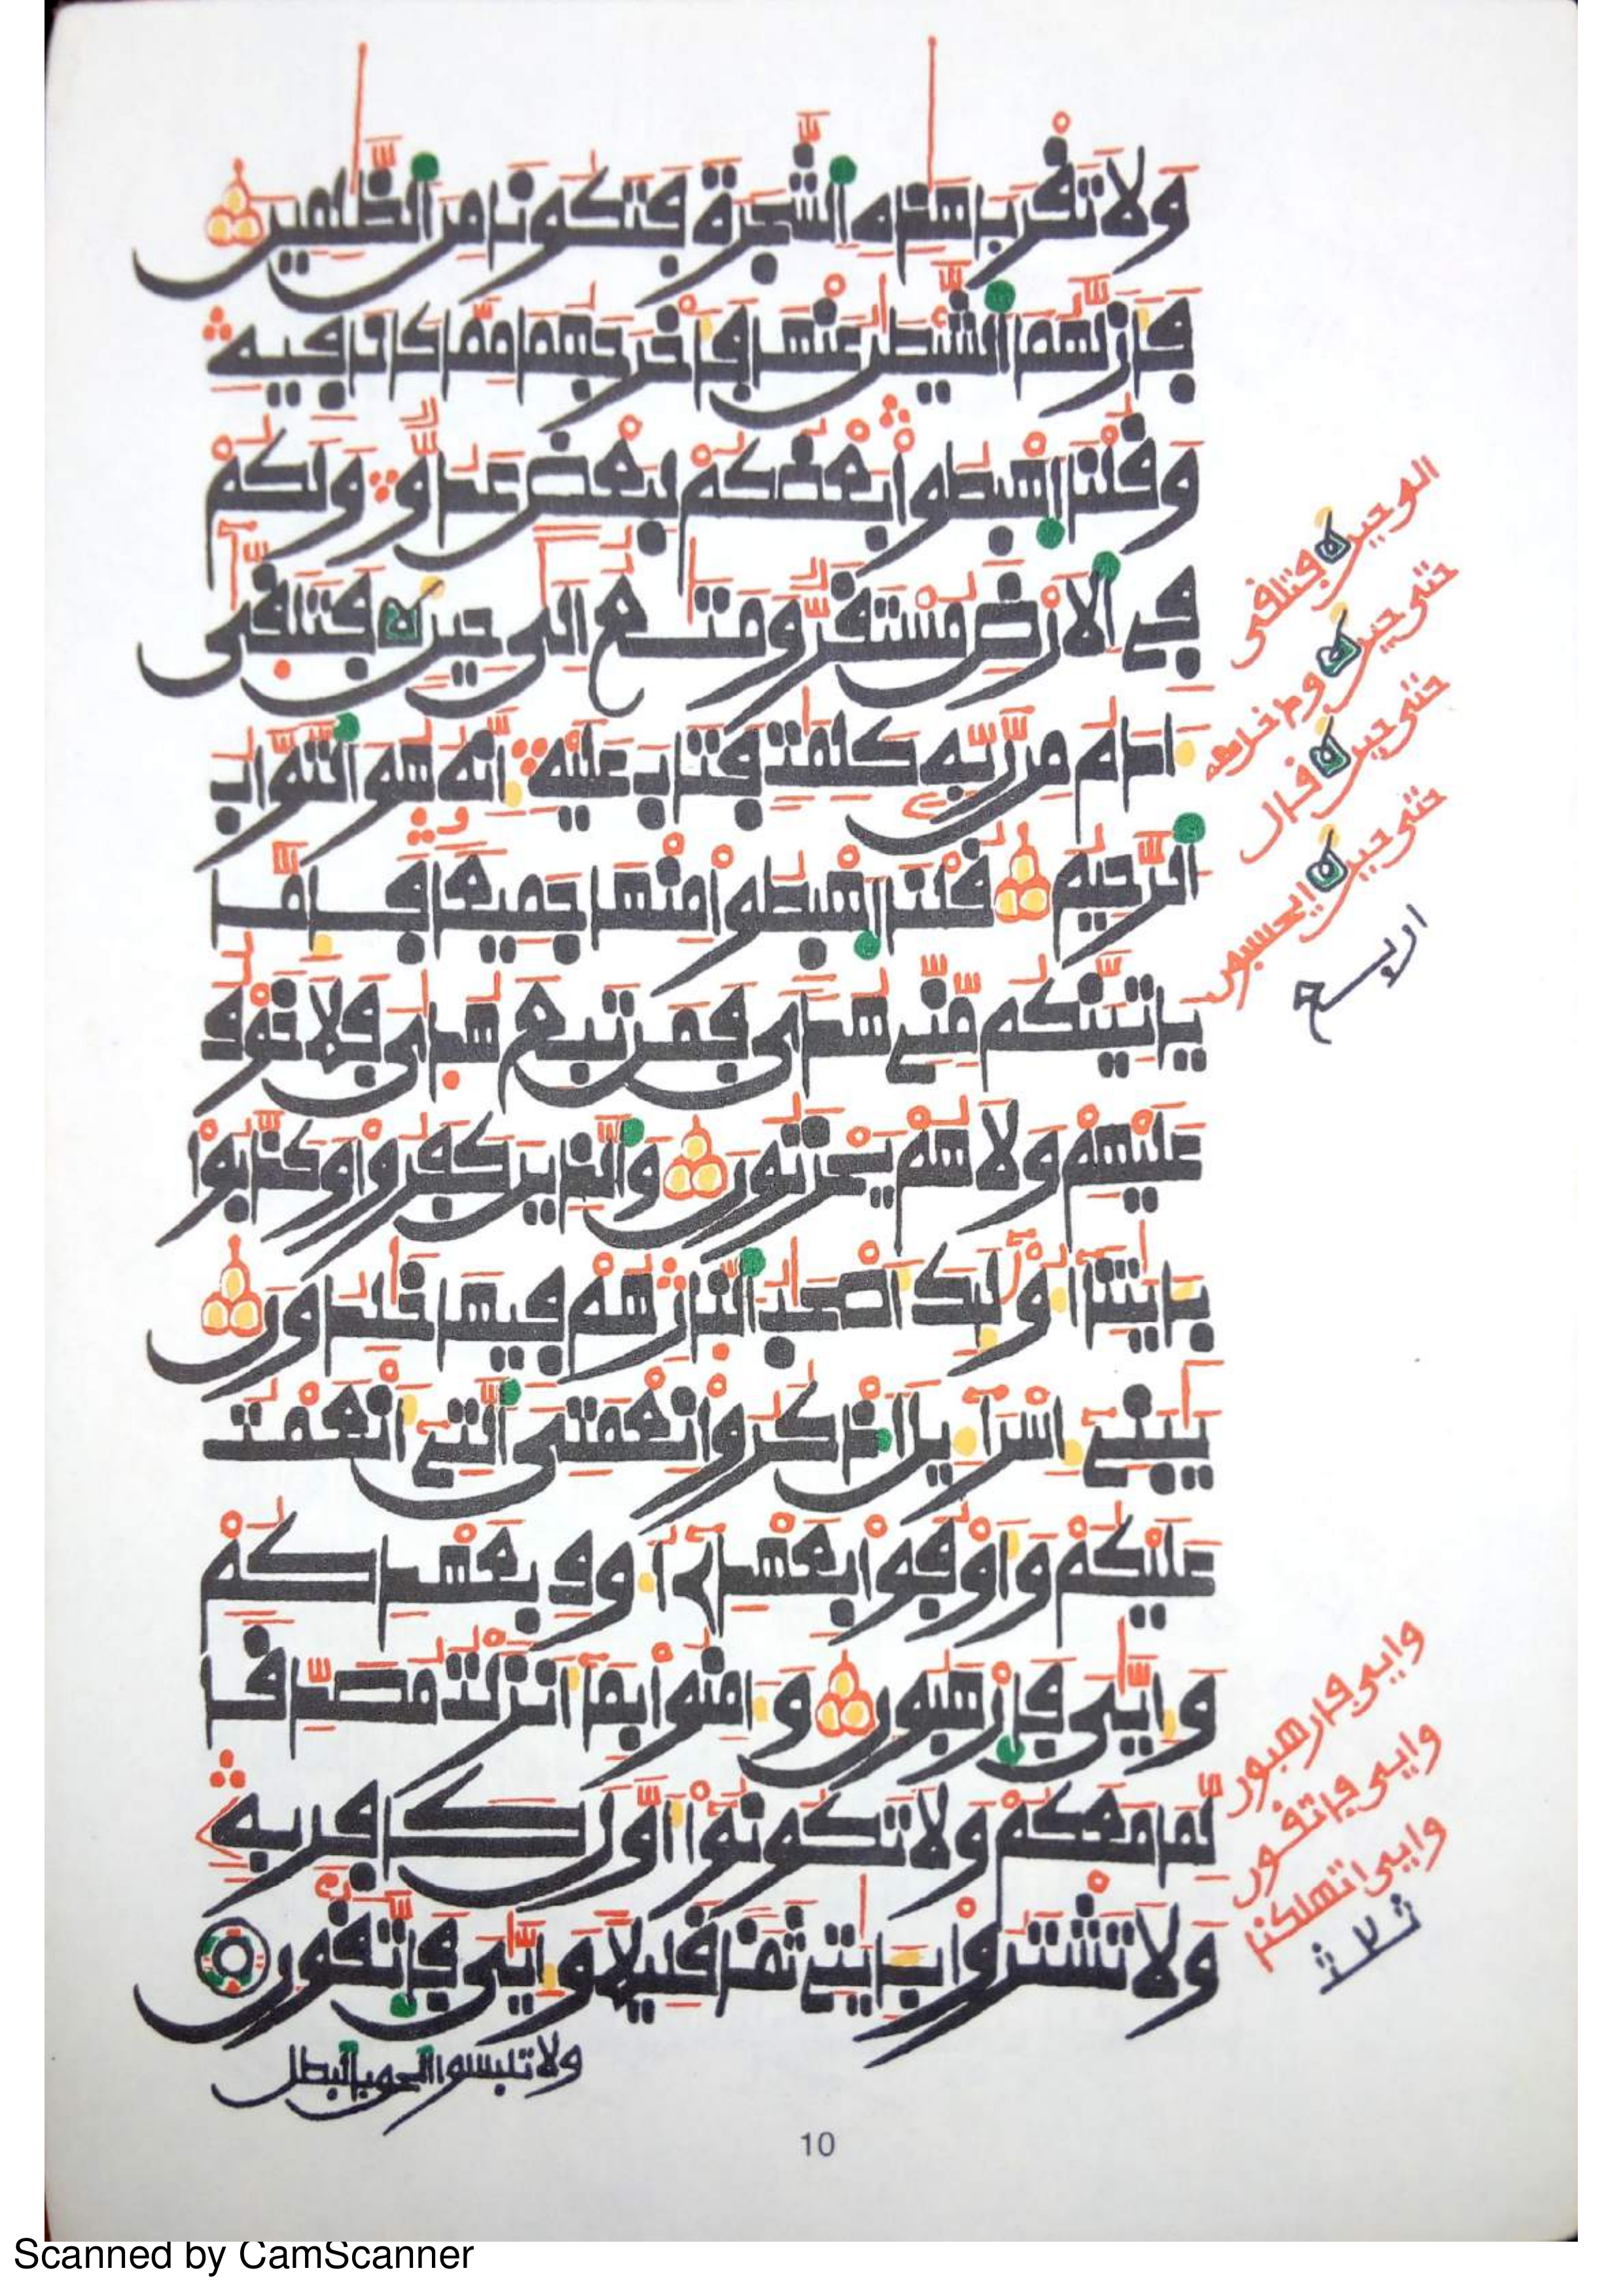 وَلَا تَقْرَبَا هَٰذِهِ اِ۬لشَّجَرَةَ فَتَكُونَا مِنَ اَ۬لظَّٰلِمِينَ
فَأَزَلَّهُمَا اَ۬لشَّيْطَٰنُ عَنْهَا فَأَخْرَجَهُمَا مِمَّا كَانَا فِيهِ
وَقُلْنَا اَ۪هْبِطُوا۟ بَعْضُكُمْ لِبَعْضٍ عَدُوّٞ وَلَكُمْ
فِے اِ۬لَارْضِ مُسْتَقَرّٞ وَمَتَٰعٌ اِلَىٰ حِينٖ فَتَلَقّ۪ىٰ
ءَادَمُ مِن رَّبِّهِۦ كَلِمَٰتٖ فَتَابَ عَلَيْهِ إِنَّهُۥ هُوَ اَ۬لتَّوَّابُ
اُ۬لرَّحِيمُ قُلْنَا اَ۪هْبِطُوا۟ مِنْهَا جَمِيعاٗ فَإِمَّا
يَاتِيَنَّكُم مِّنِّے هُدىٗ فَمَن تَبِعَ هُد۪ايَ فَلَا خَوْفٌ
عَلَيْهِمْ وَلَا هُمْ يَحْزَنُونَ وَالذِينَ كَفَرُوا۟ وَكَذَّبُوا۟
بِـَٔايَٰتِنَآ أُوْلَٰٓئِكَ أَصْحَٰبُ اُ۬لنّ۪ارِ هُمْ فِيهَا خَٰلِدُونَ
يَٰبَنِےٓ إِسْرَآءِيلَ اَ۟ذْكُرُوا۟ نِعْمَتِيَ اَ۬لتِےٓ أَنْعَمْتُ
عَلَيْكُمْ وَأَوْفُوا۟ بِعَهْدِےٓ أُوفِ بِعَهْدِكُمْ
وَإِيَّٰيَ فَارْهَبُونِ وَءَامِنُوا۟ بِمَآ أَنزَلْتُ مُصَدِّقاٗ
لِّمَا مَعَكُمْ وَلَا تَكُونُوٓا۟ أَوَّلَ كَافِرِۢ بِهِۦ
وَلَا تَشْتَرُوا۟ بِـَٔايَٰتِے ثَمَناٗ قَلِيلاٗ وَإِيَّٰيَ فَاتَّقُونِ
ولا تلبسوا الحق بالبطل
10
الى حين فتلقى
حتى حين
حتى حين قال
حتى حين ايحسبون
اربع
وايى فارهبون
وايى فاتقون
وايى اتهلكنا
ثلاث
Scanned by CamScanner